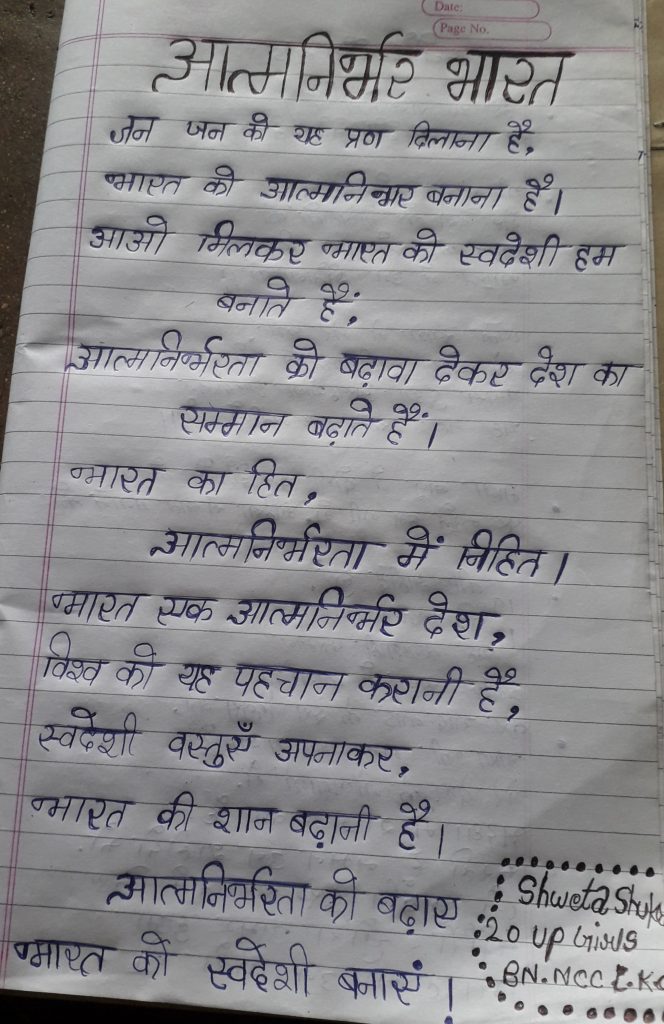 Date:
Page No.
आत्मनिर्भर भारत
जन जन को यह प्रण दिलाना है,
भारत को आत्मनिर्भर बनाना है।
आओ मिलकर भारत को स्वदेशी हम
बनाते हैं,
आत्मनिर्भरता को बढ़ावा देकर देश का
सम्मान बढ़ाते हैं।
भारत का हित,
आत्मनिर्भरता में निहित।
भारत एक आत्मनिर्भर देश,
विश्व को यह पहचान करानी है,
स्वदेशी वस्तुएँ अपनाकर,
भारत की शान बढ़ानी है।
आत्मनिर्भरता को बढ़ाए
भारत को स्वदेशी बनाएं।
Shweta
20 UP Girls
BN. NCC